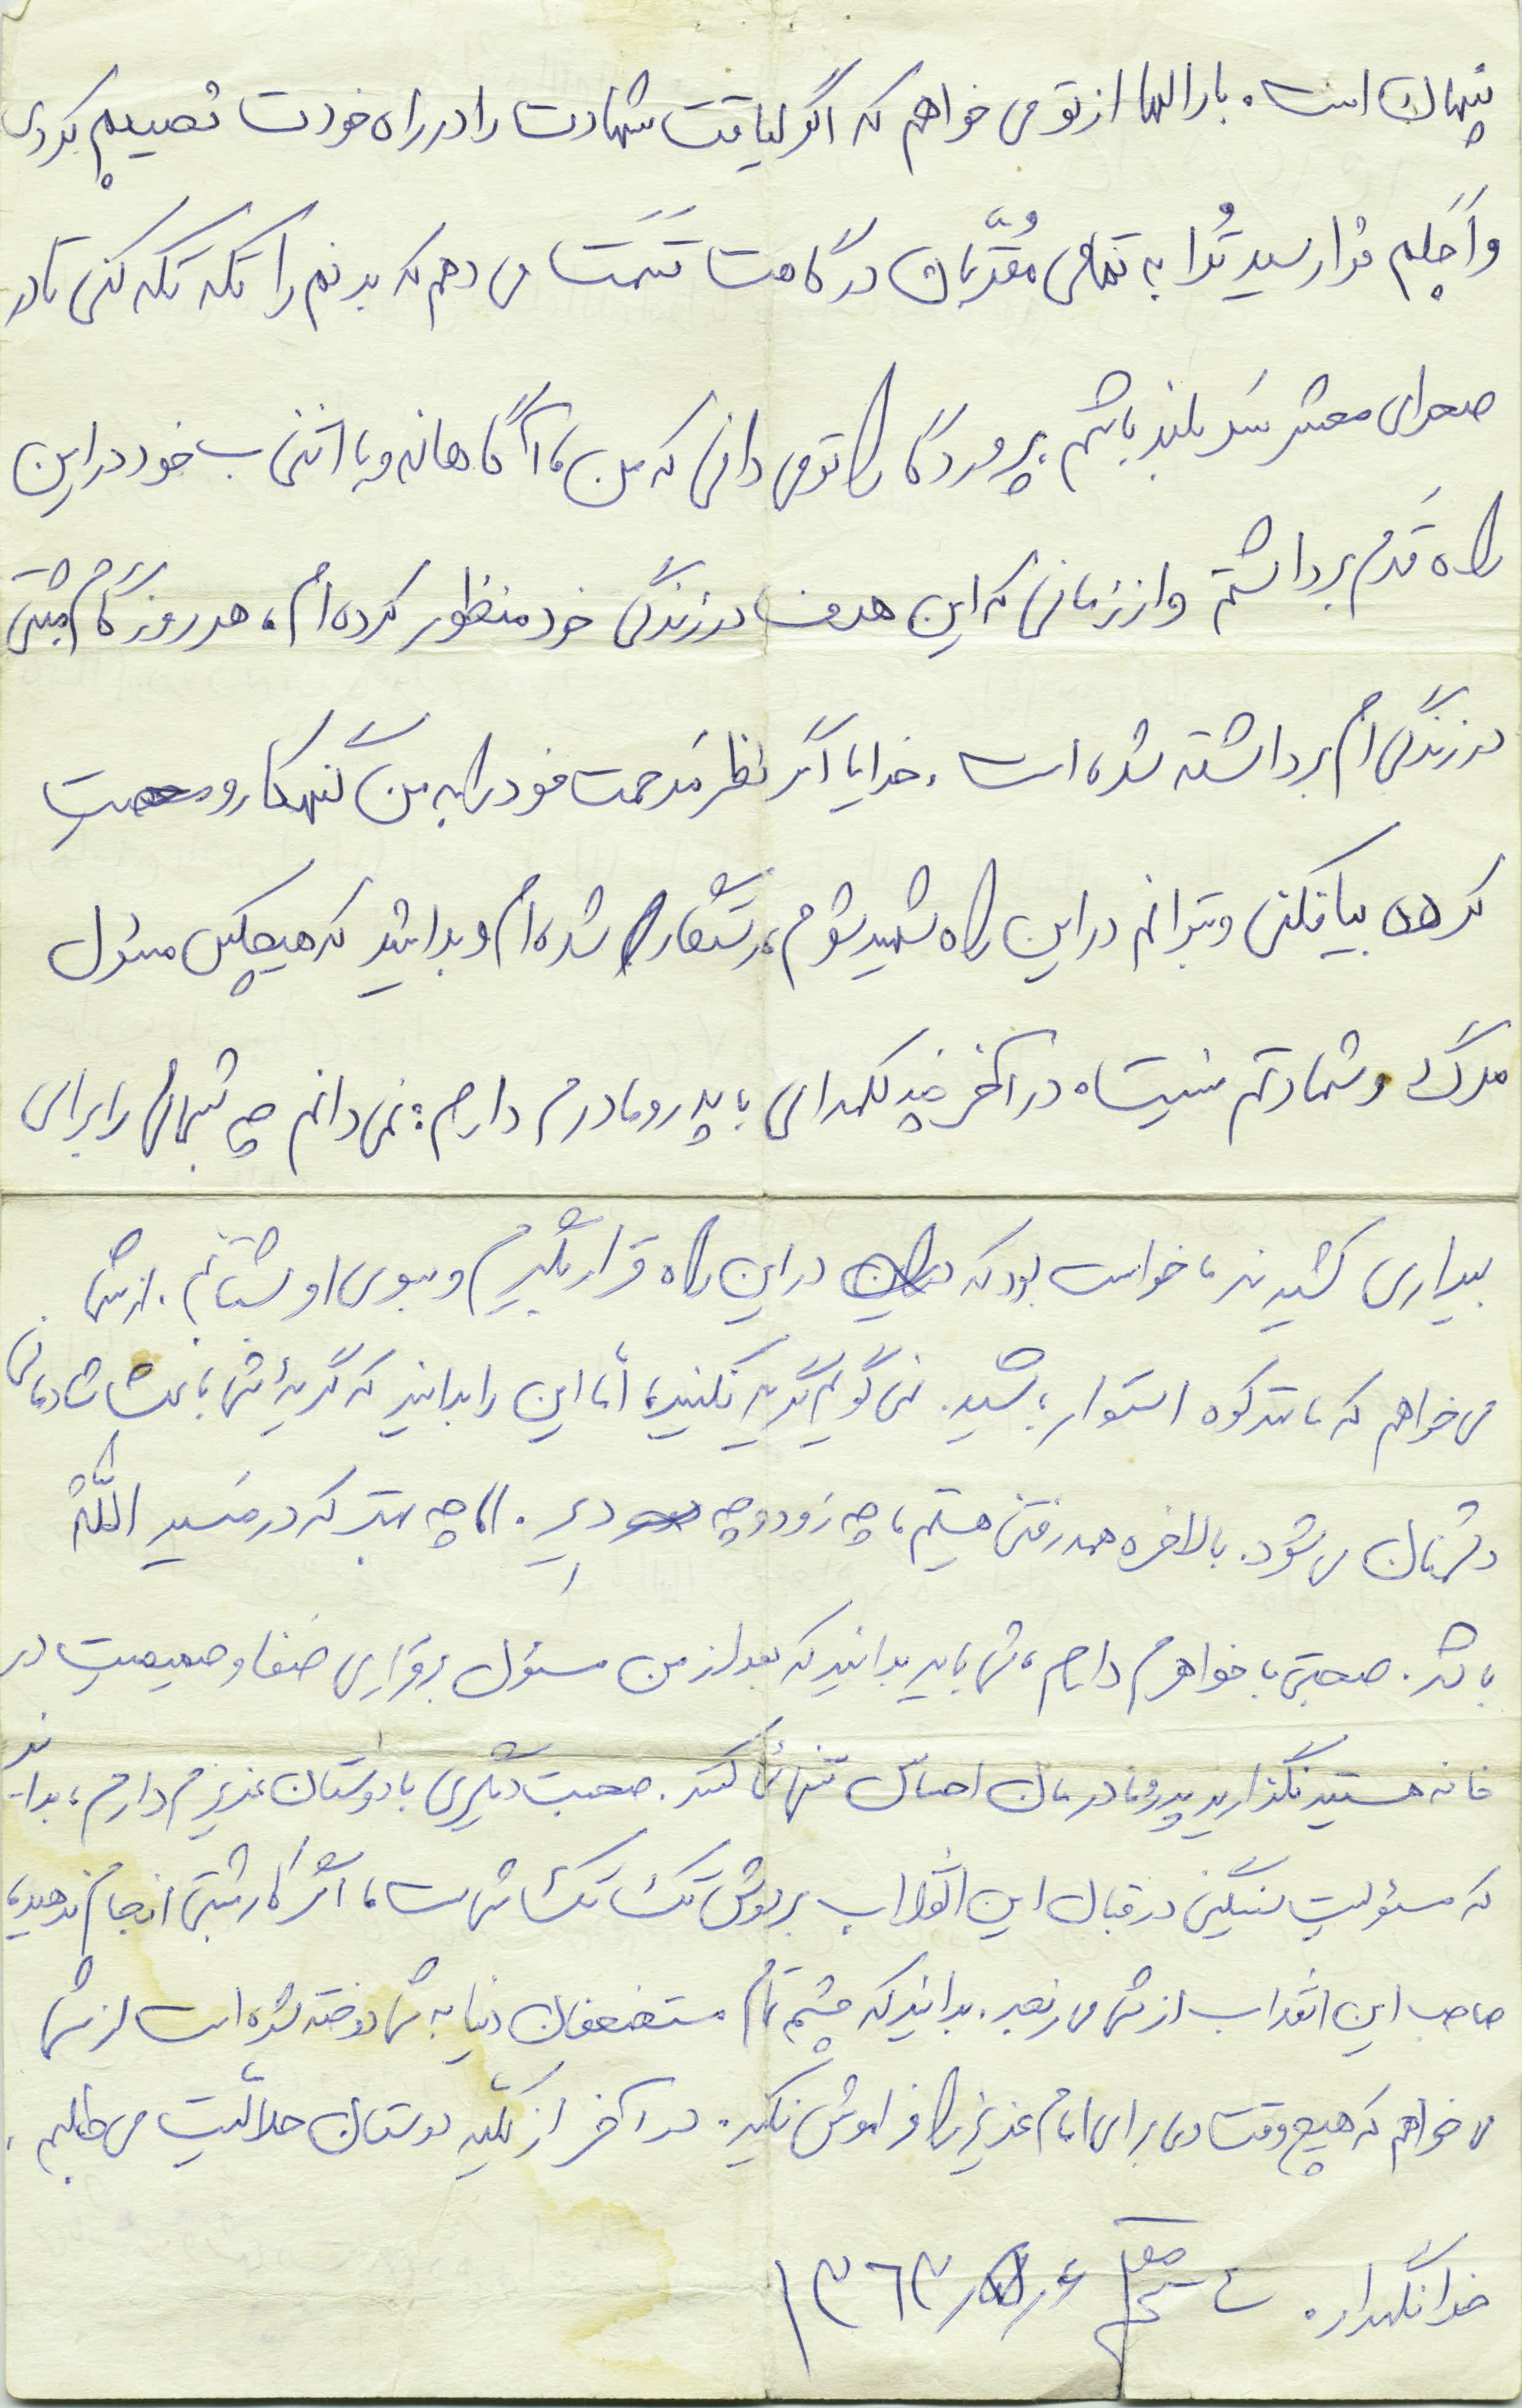 پنهان است. بارالها از تو می خواهم که اگر لیاقت شهادت را در راه خودت نصیبم کردی
و اَجلم فرا رسید تُرا به تمامی مُقرّبان درگاهت قَسَمَت می دهم که بدنم را تکه تکه کنی تا در
صحرای محشر سَربلند باشم، پروردگارا تو می دانی که من، آگاهانه و با انتخاب خود در این
راه قَدم برداشتم و از زمانی که این هدف در زندگی خود منظور کرده ام، هر روز گام مثبتی
در زندگی ام برداشته شده است. خدایا اگر نظر مَرحمت خود را به من گنهکار و
بیافکنی و بتوانم در این راه شهید شوم، رستگار شده ام و بدانید که هیچکس مسئول
مرگ و شهادتم نیست. در آخر چند کلمه ای با پدر و مادرم دارم: نمی دانم چه شبهائی را برای
بیداری کشیدند، خواست بود که در این راه قرار بگیرم و بسوی او بشتابم. از شما
می خواهم که مانند کوه استوار باشید. نمی گویم گریه نکنید، اما این را بدانید که گریهٔ شما باعث شادمانی
دشمنان می شود. بالاخره همه رفتنی هستیم، چه زود و چه دیر. اما چه بهتر که در مَسیر اللّٰه
باشد. صحبتی با خواهرم دارم، شما باید بدانید که بعد از من مسئول برقراری صفا و صمیمیت در
خانه هستید نگذارید پدر و مادرمان احساس تنهائی کنند. صحبت دیگری با دوستان عزیزم دارم، بدانید
که مسئولیت سنگینی در قبال این انقلاب بر دوش تک تک شماست، اگر کار مثبتی انجام ندهید،
صاحب این انقلاب از شما می رنجد. بدانید که چشم تمام مستضعفان دنیا به شما دوخته شده است از شما
می خواهم که هیچ وقت دعای برای امام عزیز را فراموش نکنید. در آخر از کلیه دوستان حلالیت می طلبم.
خدا نگهدار. ۱۳۶۳